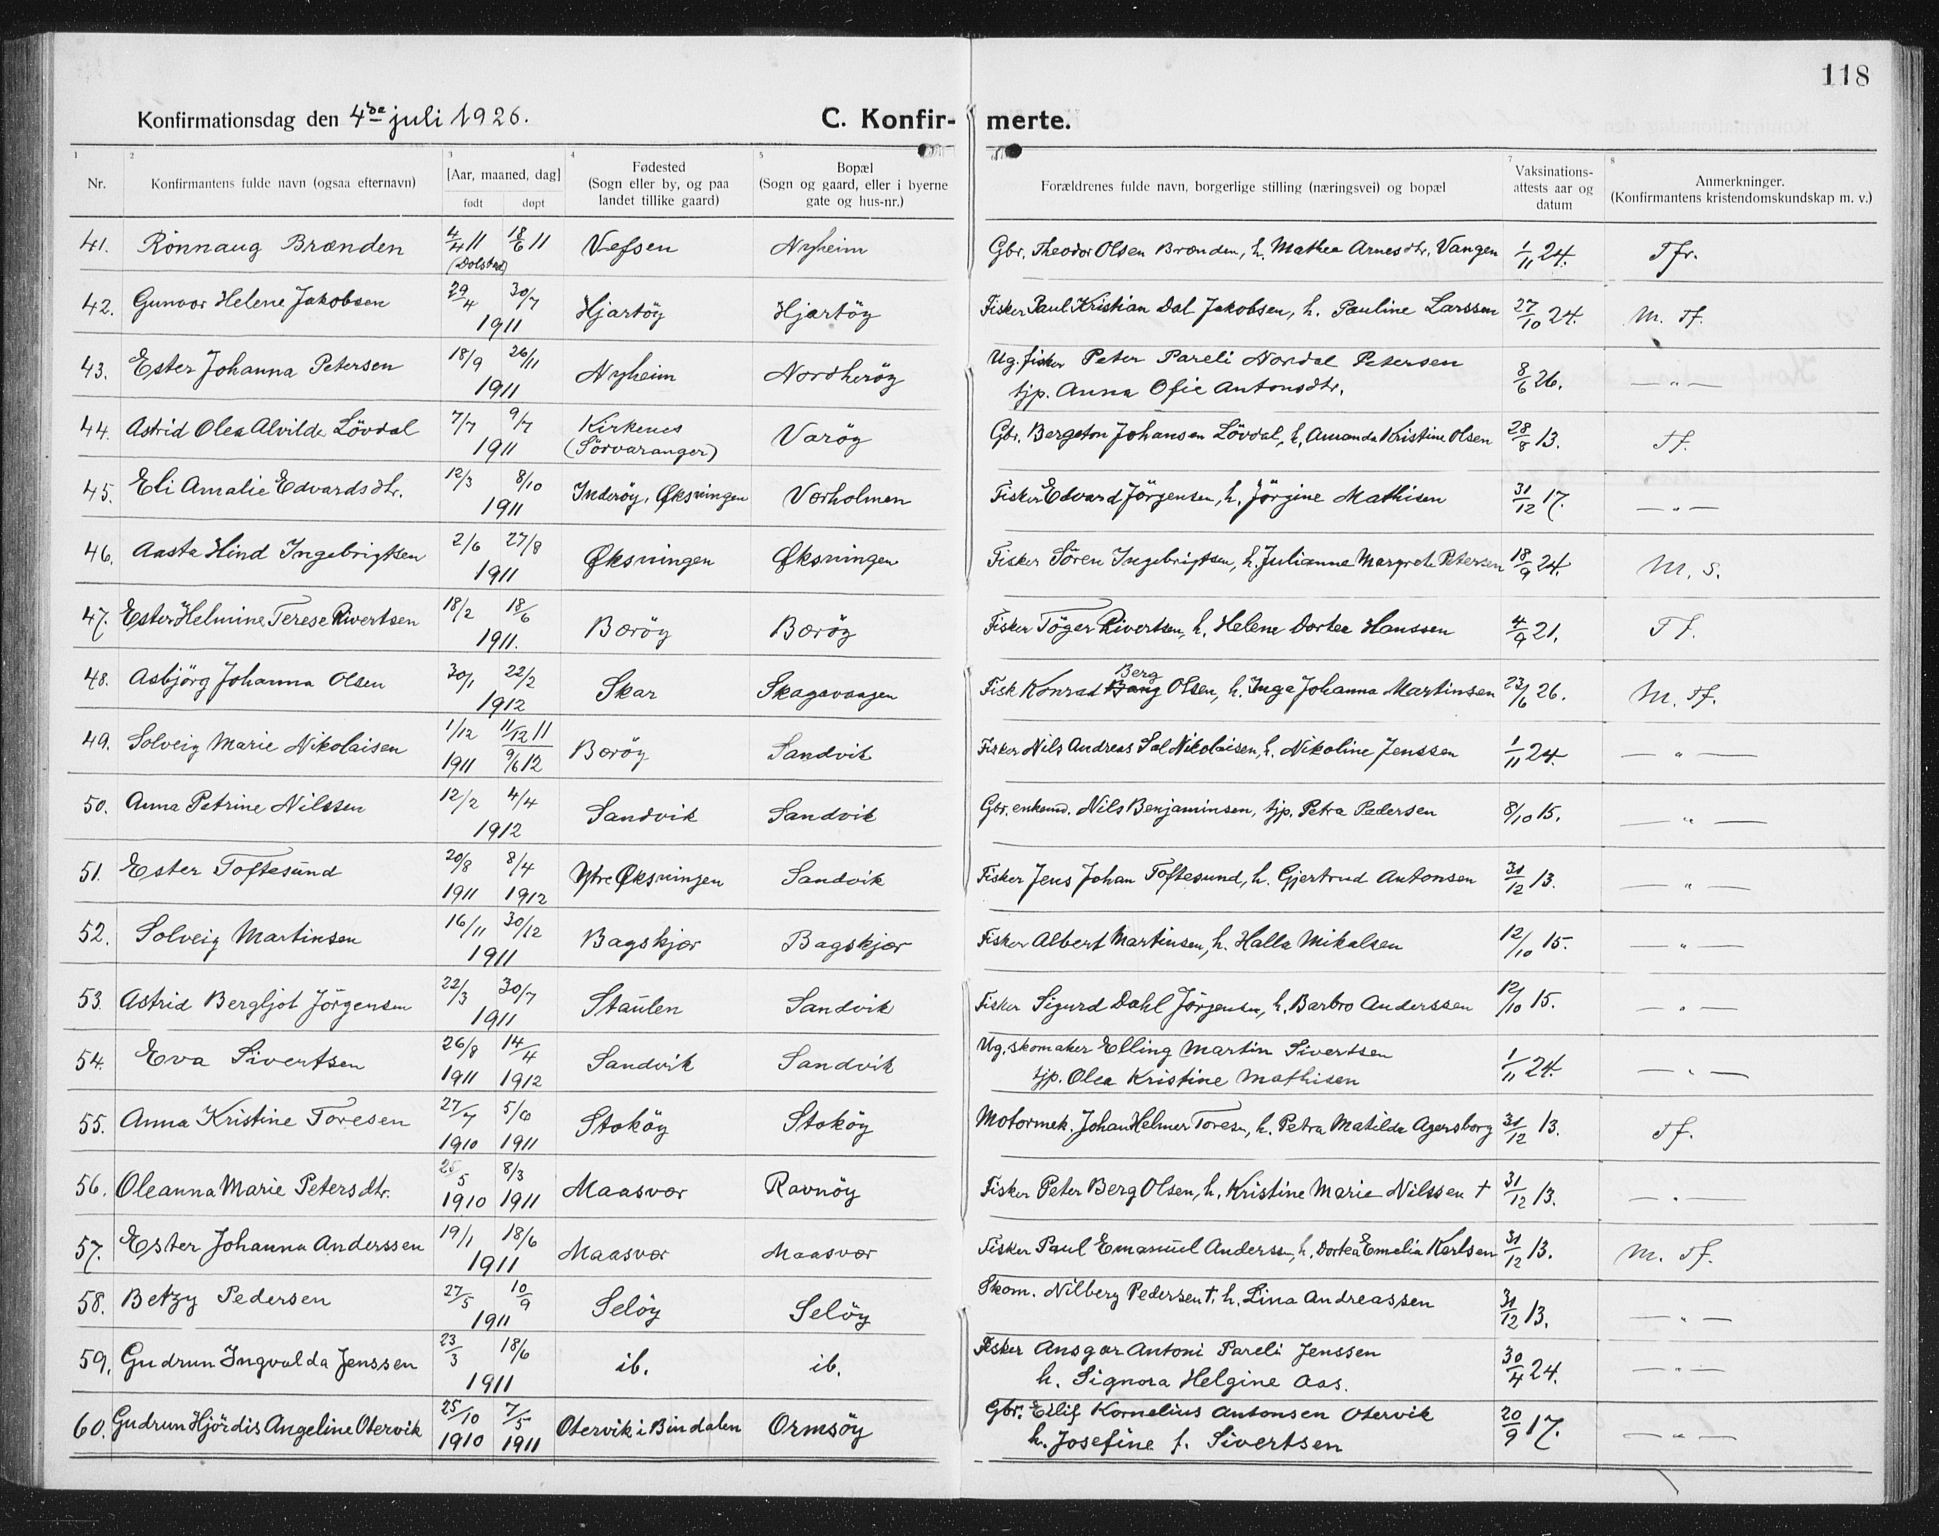 118
Konfirmationsdag den 4de juli 1926.
C. Konfirmerte.
1 2 3 4 5 7 8
Nr. Konfirmantens fulde navn (ogsaa efternavn) [Aar, maaned, dag] født døpt Fødested (Sogn eller by, og paa landet tillike gaard) Bopæl (Sogn og gaard, eller i byerne gate og hus-nr.) Forældrenes fulde navn, borgerlige stilling (næringsvei) og bopæl Vaksinations-attests aar og datum Anmerkninger. (Konfirmantens kristendomskundskap m. v.)
41. Rönnaug Brænden 4/4 11 18/6 11 (Dolstad) Vefsen Nyheim Gbr. Theodor Olsen Brænden, h. Mathea Arnesdtr. Vangen 1/11 24. Tfr.
42. Gunvor Helene Jakobsen 29/4 30/7 1911 Hjartöy Hjartöy Fisker Paul Kristian Dal Jakobsen, h. Pauline Larssen 27/10 24. M. Tf.
43. Ester Johanna Petersen 18/9 26/11 1911 Nyheim Nordheröy Ug. fisker Peter Pareli Nordal Petersen
tjp. Anna Ofie Antonsdtr. 8/6 26. — " —
44. Astrid Olea Alvilde Lövdal 7/7 9/7 1911 Kirkenes (Sörvaranger) Varöy Gbr. Bergeton Johansen Lövdal, h. Amanda Kristine Olsen 28/8 13. Tf.
45. Eli Amalie Edvardsdtr. 12/3 8/10 1911 Inderöy, Øksningen Vorholmen Fisker Edvard Jörgensen, h. Jörgine Mathisen 31/12 17. — " —
46. Aasta Hind Ingebrigtsen 2/6 27/8 1911 Øksningen Øksningen Fisker Sören Ingebrigtsen, h. Julianne Margrete Petersen 18/9 24. M. s.
47. Ester Helmine Terese Rivertsen 18/2 18/6 1911. Bæröy Bæröy Fisker Töger Rivertsen, h. Helene Dortea Hanssen 4/9 21. Tf.
48. Asbjörg Johanna Olsen 30/1 22/2 1912 Skar Skagavaagen Fisk Konrad Berg Olsen, h. Inga Johanna Martinsen 23/6 26. M. Tf.
49. Solveig Marie Nikolaisen 1/12 1911 11/12 11 9/6 12 Bæröy Sandvik Fisker Nils Andreas Sal Nikolaisen, h. Nikoline Jenssen 1/11 24. — " —
50. Anna Petrine Nilssen 12/2 4/4 1912 Sandvik Sandvik Gbr. enkem. Nils Benjaminsen, tjp. Petra Pedersen 8/10 15. — " —
51. Ester Toftesund 20/8 1911 8/4 1912 Ytre Øksningen Sandvik Fisker Jens Johan Toftesund, h. Gjertrud Antonsen 31/12 13. — " —
52. Solveig Martinsen 16/11 30/12 1911 Bagskjær Bagskjær Fisker Albert Martinsen, h. Halla Mikalsen 12/10 15. — " —
53. Astrid Bergljot Jörgensen 22/3 30/7 1911 Staulen Sandvik Fisker Sigurd Dahl Jörgensen, h. Barbro Anderssen 12/10 15. — " —
54. Eva Sivertsen 26/8 1911 14/4 1912 Sandvik Sandvik Ug. skomaker Elling Martin Sivertsen
tjp. Olea Kristine Mathisen 1/11 24. — " —
55. Anna Kristine Toresen 27/7 1910 5/6 1911 Stoköy Stoköy Motormek. Johan Helmer Toresen, h. Petra Matilde Agersborg 31/12 13. Tf.
56. Oleanna Marie Petersdtr. 25/5 1910 8/3 1911 Maasvær Ravnöy Fisker Peter Berg Olsen, h. Kristine Marie Nilssen † 31/12 13. — " —
57. Ester Johanna Anderssen 19/1 18/6 1911 Maasvær Maasvær Fisker Paul Emanuel Anderssen, h. Dortea Emelia Karlsen 31/12 13. M. Tf.
58. Betzy Pedersen 27/5 10/9 1911 Selöy Selöy Skom. Nilberg Pedersen †. h. Lina Andreassen 31/12 13. — " —
59. Gudrun Ingvalda Jenssen 23/3 18/6 1911 ib. ib. Fisker Ansgar Antoni Pareli Jenssen
h. Signora Helgine Aas. 30/4 24. — " —
60. Gudrun Hjördis Angeline Otervik 25/10 1910 7/5 1911 Otervik i Bindalen Ormsöy Gbr. Eilif Kornelius Antonsen Otervik
h. Josefine f. Sivertsen 20/9 17. — " —